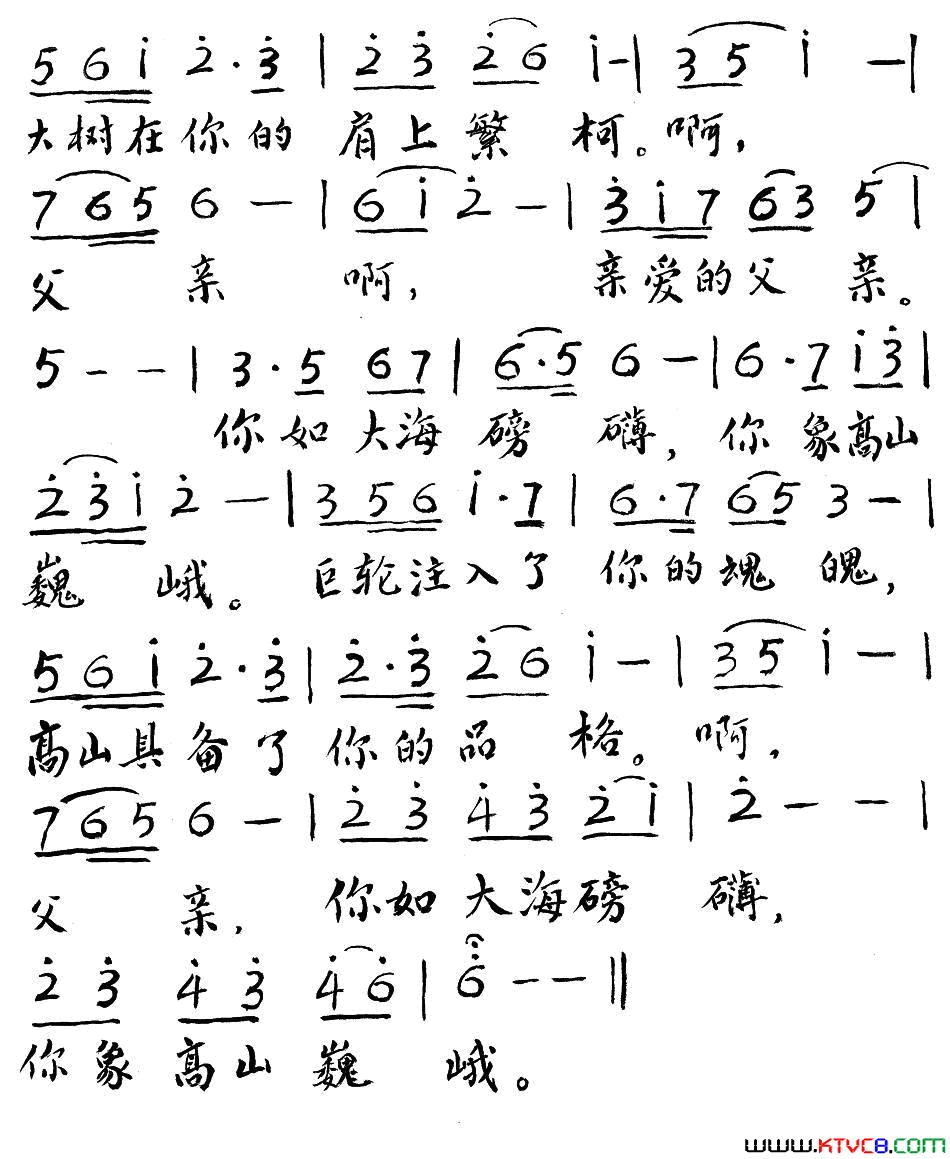 5 6 i̇ 2̇ · 3̇ | 2̇ 3̇ 2̇ 6 i̇ - | 3 5 i̇ — |
大树在你的肩上繁柯。啊，
7 6 5 6 — | 6 i̇ 2̇ — | 3̇ i̇ 7 6 3 5 |
父亲啊，亲爱的父亲。
5 - - | 3 · 5 6 7 | 6 · 5 6 — | 6 · 7 i̇ 3̇ |
你如大海磅礴，你象高山
2̇ 3̇ i̇ 2̇ — | 3 5 6 i̇ · 7 | 6 · 7 6 5 3 — |
巍峨。巨轮注入了你的魂魄，
5 6 i̇ 2̇ · 3̇ | 2̇ · 3̇ 2̇ 6 i̇ — | 3 5 i̇ — |
高山具备了你的品格。啊，
7 6 5 6 — | 2̇ 3̇ 4̇ 3̇ 2̇ i̇ | 2̇ — — |
父亲，你如大海磅礴，
2̇ 3̇ 4̇ 3̇ 4̇ 6̇ | 6̇ - - ‖
你象高山巍峨。
WWW.KTVC8.COM